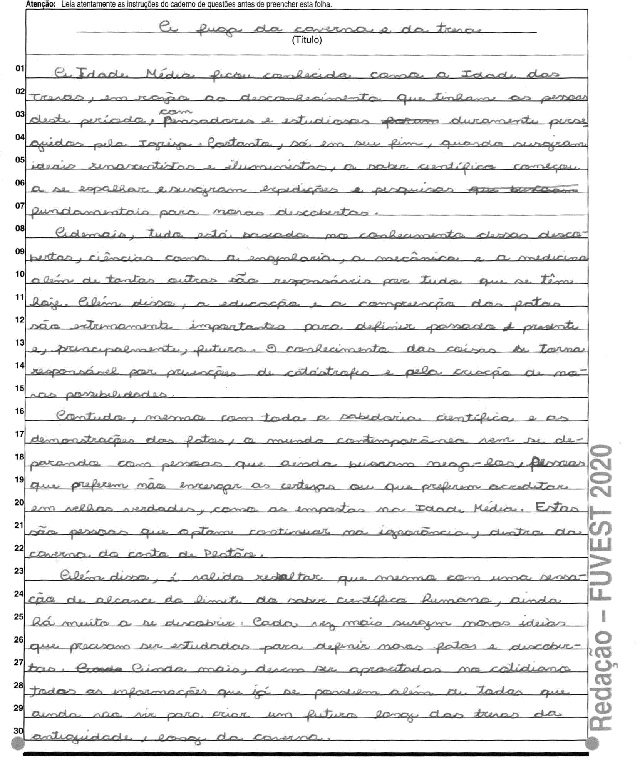 Atenção: Leia atentamente as instruções do caderno de questões antes de preencher esta folha.
A fuga da caverna e da treva
(Título)
01 A Idade Média ficou conhecida como a Idade das
02 Trevas, em razão ao desconhecimento que tinham as pessoas
03 deste período, com pensadores e estudiosos foram duramente perse-
04 guidos pela Igreja. Portanto, só em seu fim, quando surgiram
05 ideais renascentistas e iluministas, o saber científico começou
06 a se espalhar e surgiram expedições e pesquisas
07 fundamentais para novas descobertas.
08 Ademais, tudo está baseado no conhecimento dessas desco-
09 bertas, ciências como a engenharia, a mecânica e a medicina
10 além de tantas outras são responsáveis por tudo que se têm
11 hoje. Além disso, a educação e a compreenção dos fatos
12 são extremamente importantes para definir passado, presente
13 e, principalmente, futuro. O conhecimento das coisas se torna
14 responsável por prevenções de catástrofes e pela criação de no-
15 vas possibilidades.
16 Contudo, mesmo com toda a sabedoria científica e as
17 demonstrações dos fatos, o mundo contemporâneo vem se de-
18 parando com pessoas que ainda buscam nega-los, pessoas
19 que preferem não enxergar as certezas ou que preferem acreditar
20 em velhas verdades, como as impostas na Idade Média. Estas
21 são pessoas que optam continuar na ignorância, dentro da
22 caverna do conto de Platão.
23 Além disso, é valido ressaltar que mesmo com uma sensa-
24 ção de alcance do limite do saber científico humano, ainda
25 há muito a se descobrir. Cada vez mais surgem novas ideias
26 que precisam ser estudadas para definir novos fatos e descober-
27 tas. Ainda mais, devem ser aproveitadas no cotidiano
28 todas as informações que já se possuem além de todas que
29 ainda vão vir para criar um futuro longe das trevas da
30 antiguidade, longe da caverna.
Redação – FUVEST 2020